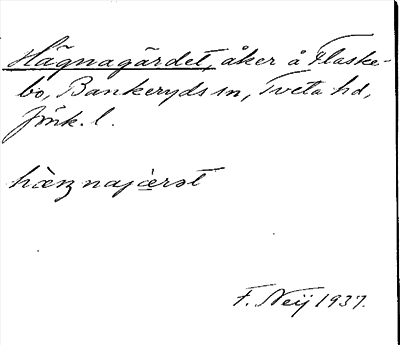 Hägnagärdet, åker å Flaske-
bo, Bankeryds sn, Tveta hd,
Jönk. l.
hæŋnajærət
F. Neij 1937.